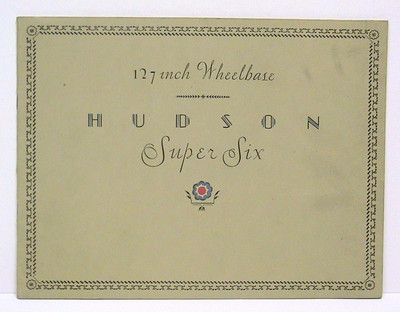 127 inch Wheelbase
HUDSON
Super Six